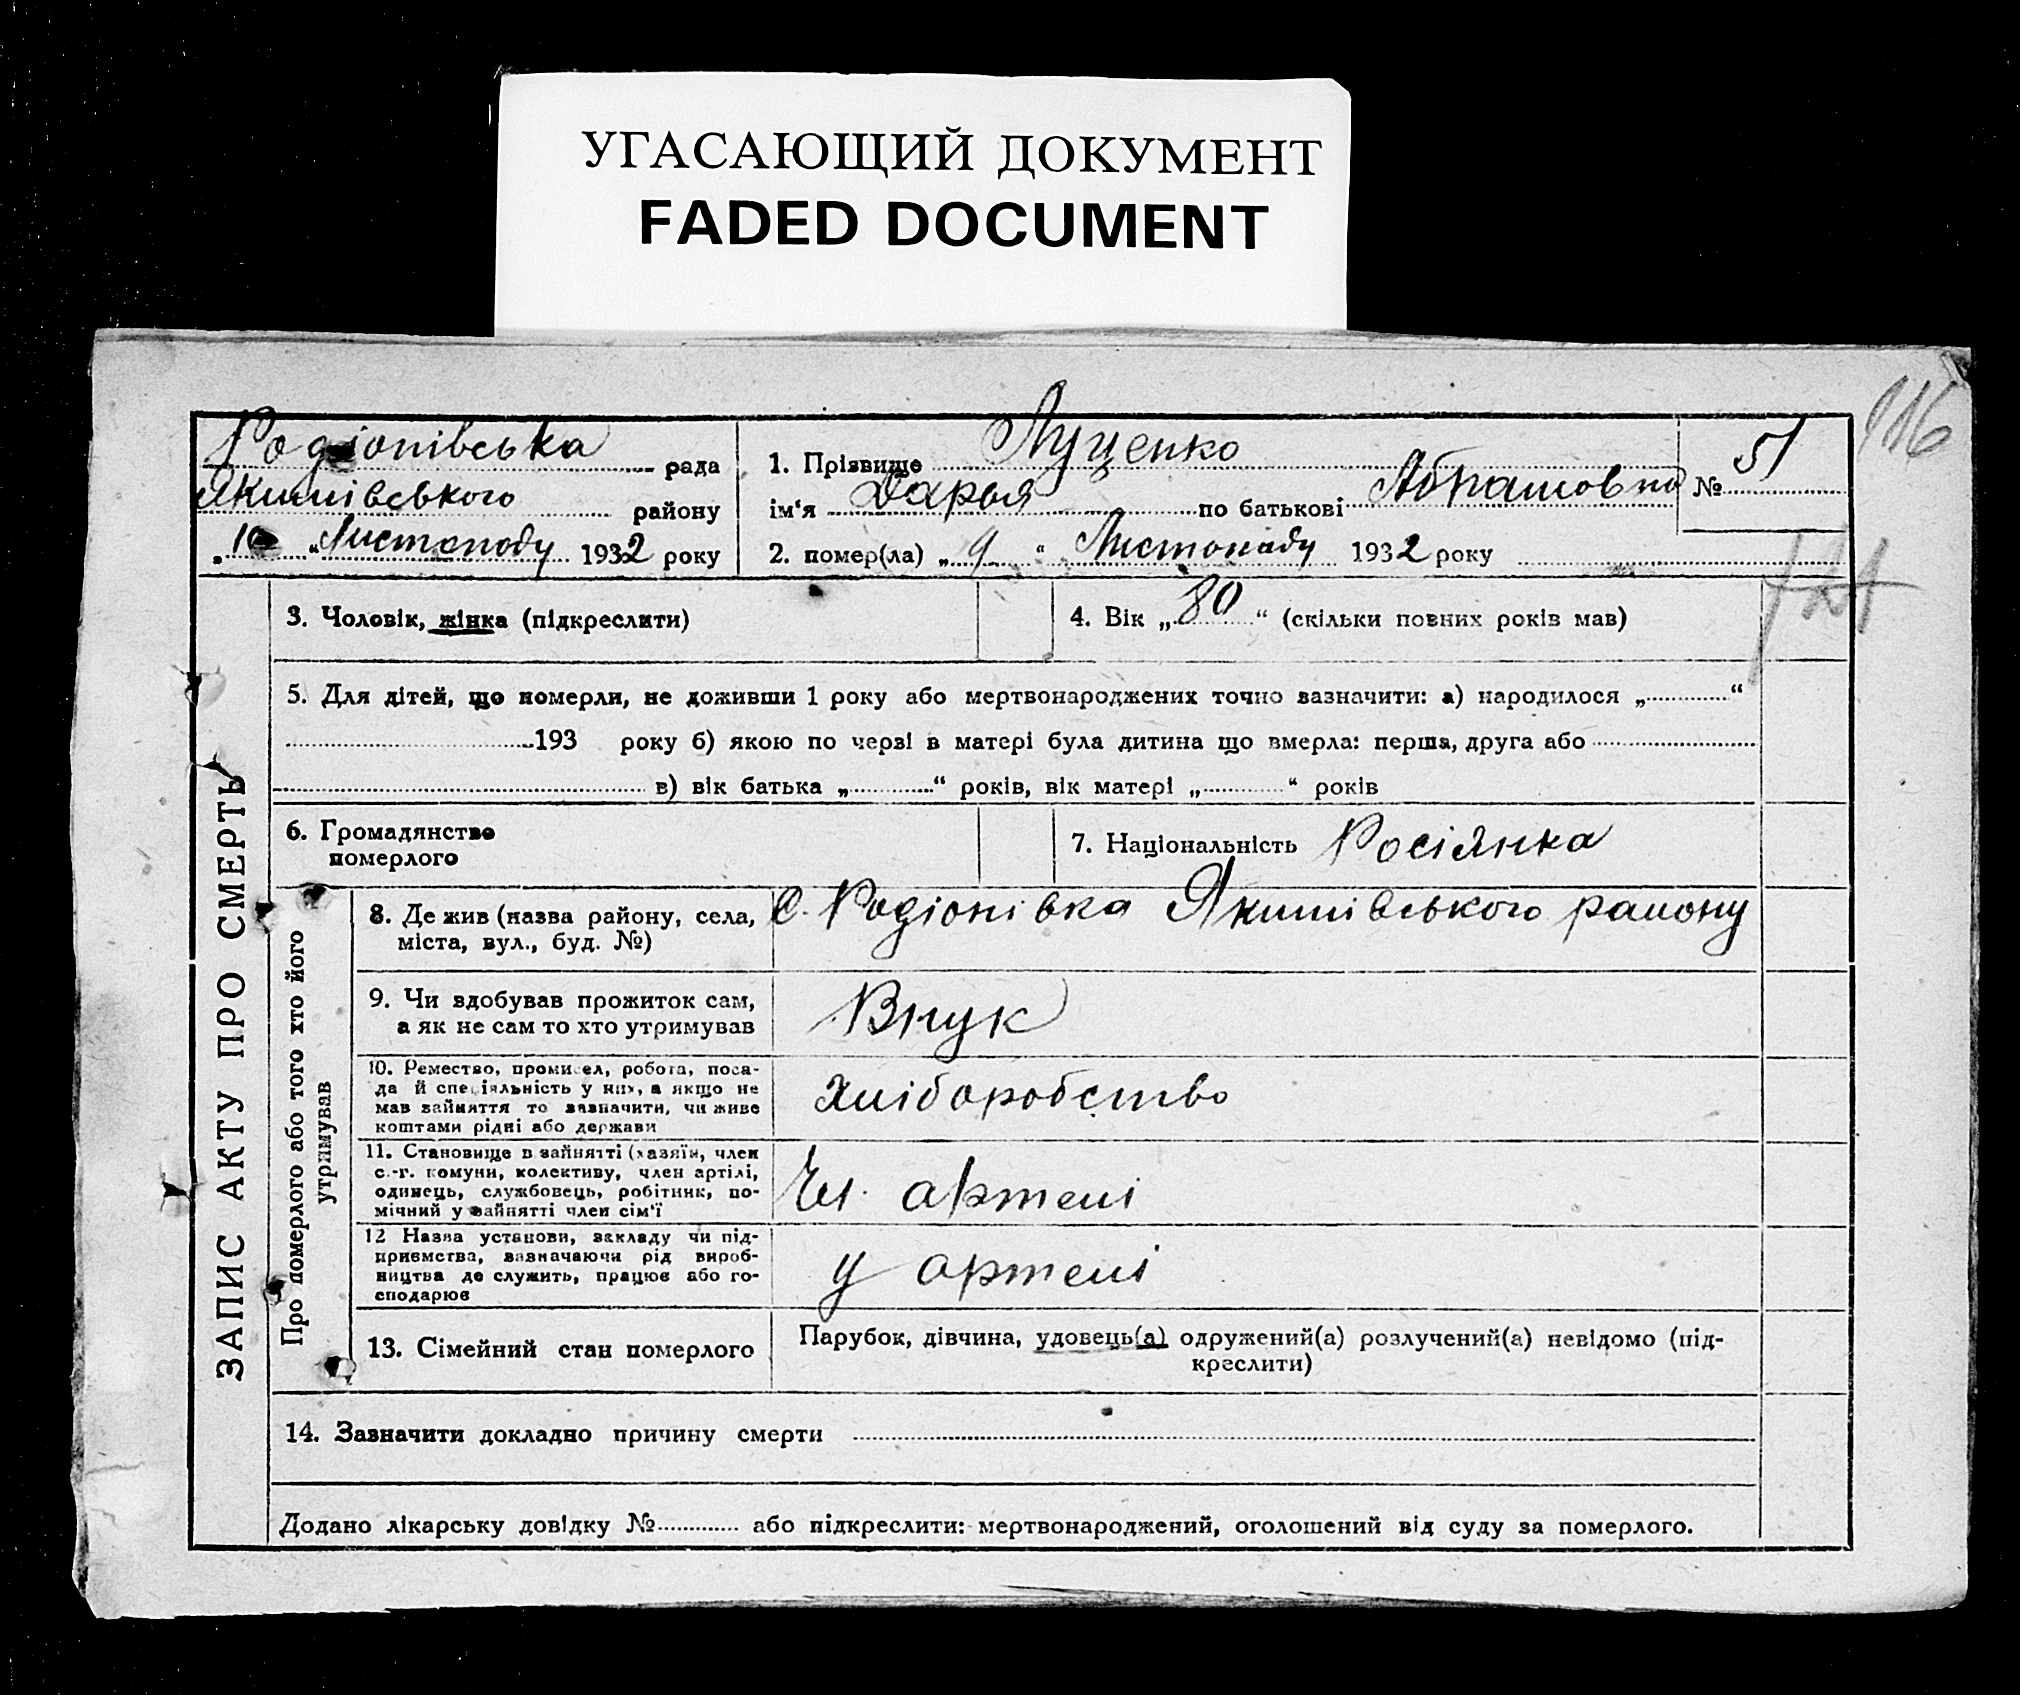 УГАСАЮЩИЙ ДОКУМЕНТ
FADED DOCUMENT
116
Родіонівська рада
Якимівського району
„10“ Листопаду 1932 року
1. Прізвище Луценко
ім'я Дарья по батькові Абрамовна
№ 51
2. помер(ла) „9“ Листопаду 1932 року
ЗАПИС АКТУ ПРО СМЕРТЬ
3. Чоловік, жінка (підкреслити)
4. Вік „80“ (скільки повних років мав)
5. Для дітей, що померли, не доживши 1 року або мертвонароджених точно зазначити: а) народилося „ “
193 року б) якою по черві в матері була дитина що вмерла: перша, друга або
в) вік батька „ “ років, вік матері „ “ років
6. Громадянство
померлого
7. Національність Росіянка
Про померлого або того хто його
утримував
8. Де жив (назва району, села,
міста, вул., буд. №)
с. Родіонівка Якимівського району
9. Чи вдобував прожиток сам,
а як не сам то хто утримував
Внук
10. Ремество, промисел, робота, поса-
да й спеціяльність у них, а якщо не
мав зайняття то зазначити, чи живе
коштами рідні або держави
Хліборобство
11. Становище в зайнятті (хазяїн, член
с.-г. комуни, колективу, член артілі,
одинець, службовець, робітник, по-
мічний у зайнятті член сім'ї
Чл. артелі
12 Назва установи, закладу чи під-
приємства, зазначаючи рід вироб-
ництва де служить, працює або го-
сподарює
у артелі
13. Сімейний стан померлого
Парубок, дівчина, удовець(а) одружений(а) розлучений(а) невідомо (під-
креслити)
14. Зазначити докладно причину смерти
Додано лікарську довідку № або підкреслити: мертвонароджений, оголошений від суду за померлого.